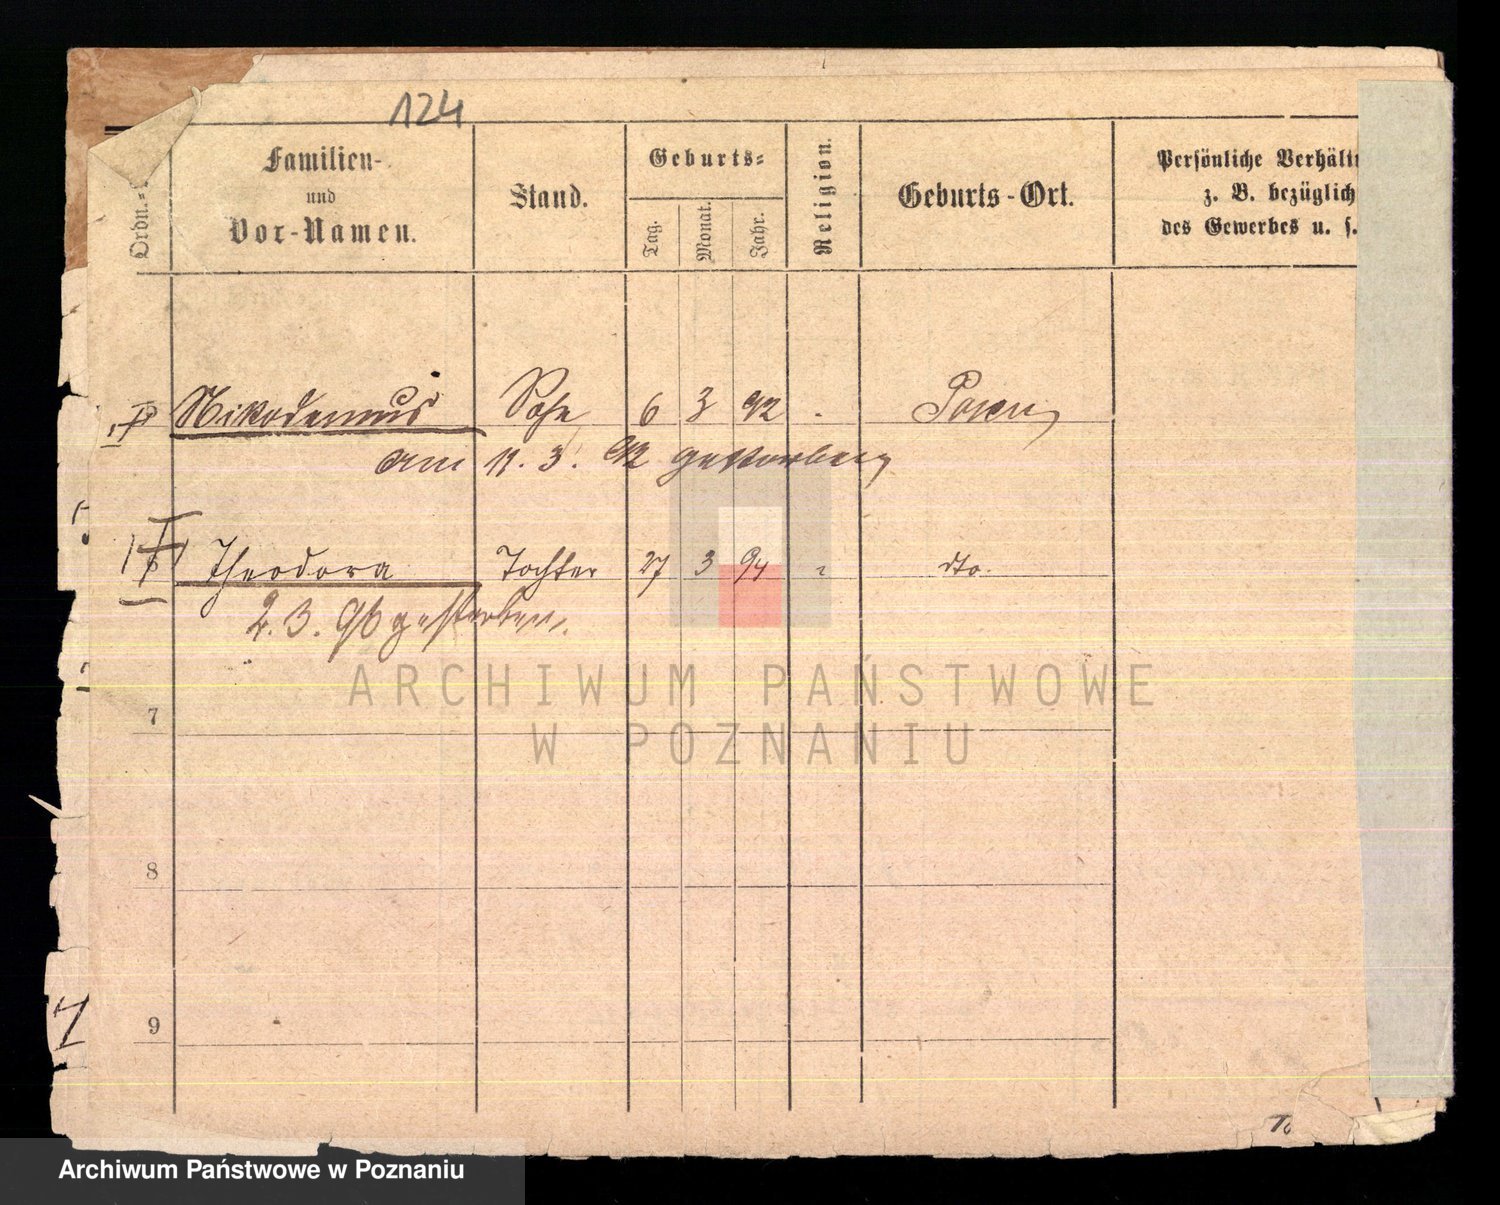 124
Ordn.-
Familien-
und
Vor-Namen.
Stand.
Geburts-
Tag.
Monat.
Jahr.
Religion.
Geburts-Ort.
Persönliche Verhält
z. B. bezüglich
des Gewerbes u. s.
Nikodemus Sohn 6 3 92 Posen
am 11. 3. 92 gestorben
Theodora Tochter 27 3 94 dto.
2. 3. 96 gestorben.
7
8
9
ARCHIWUM PAŃSTWOWE
W POZNANIU
Archiwum Państwowe w Poznaniu